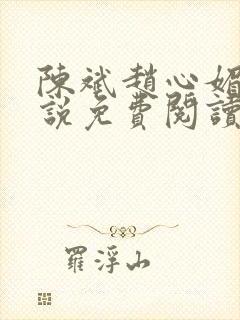 陳斌趙心媚
說免費閱讀
羅浮山